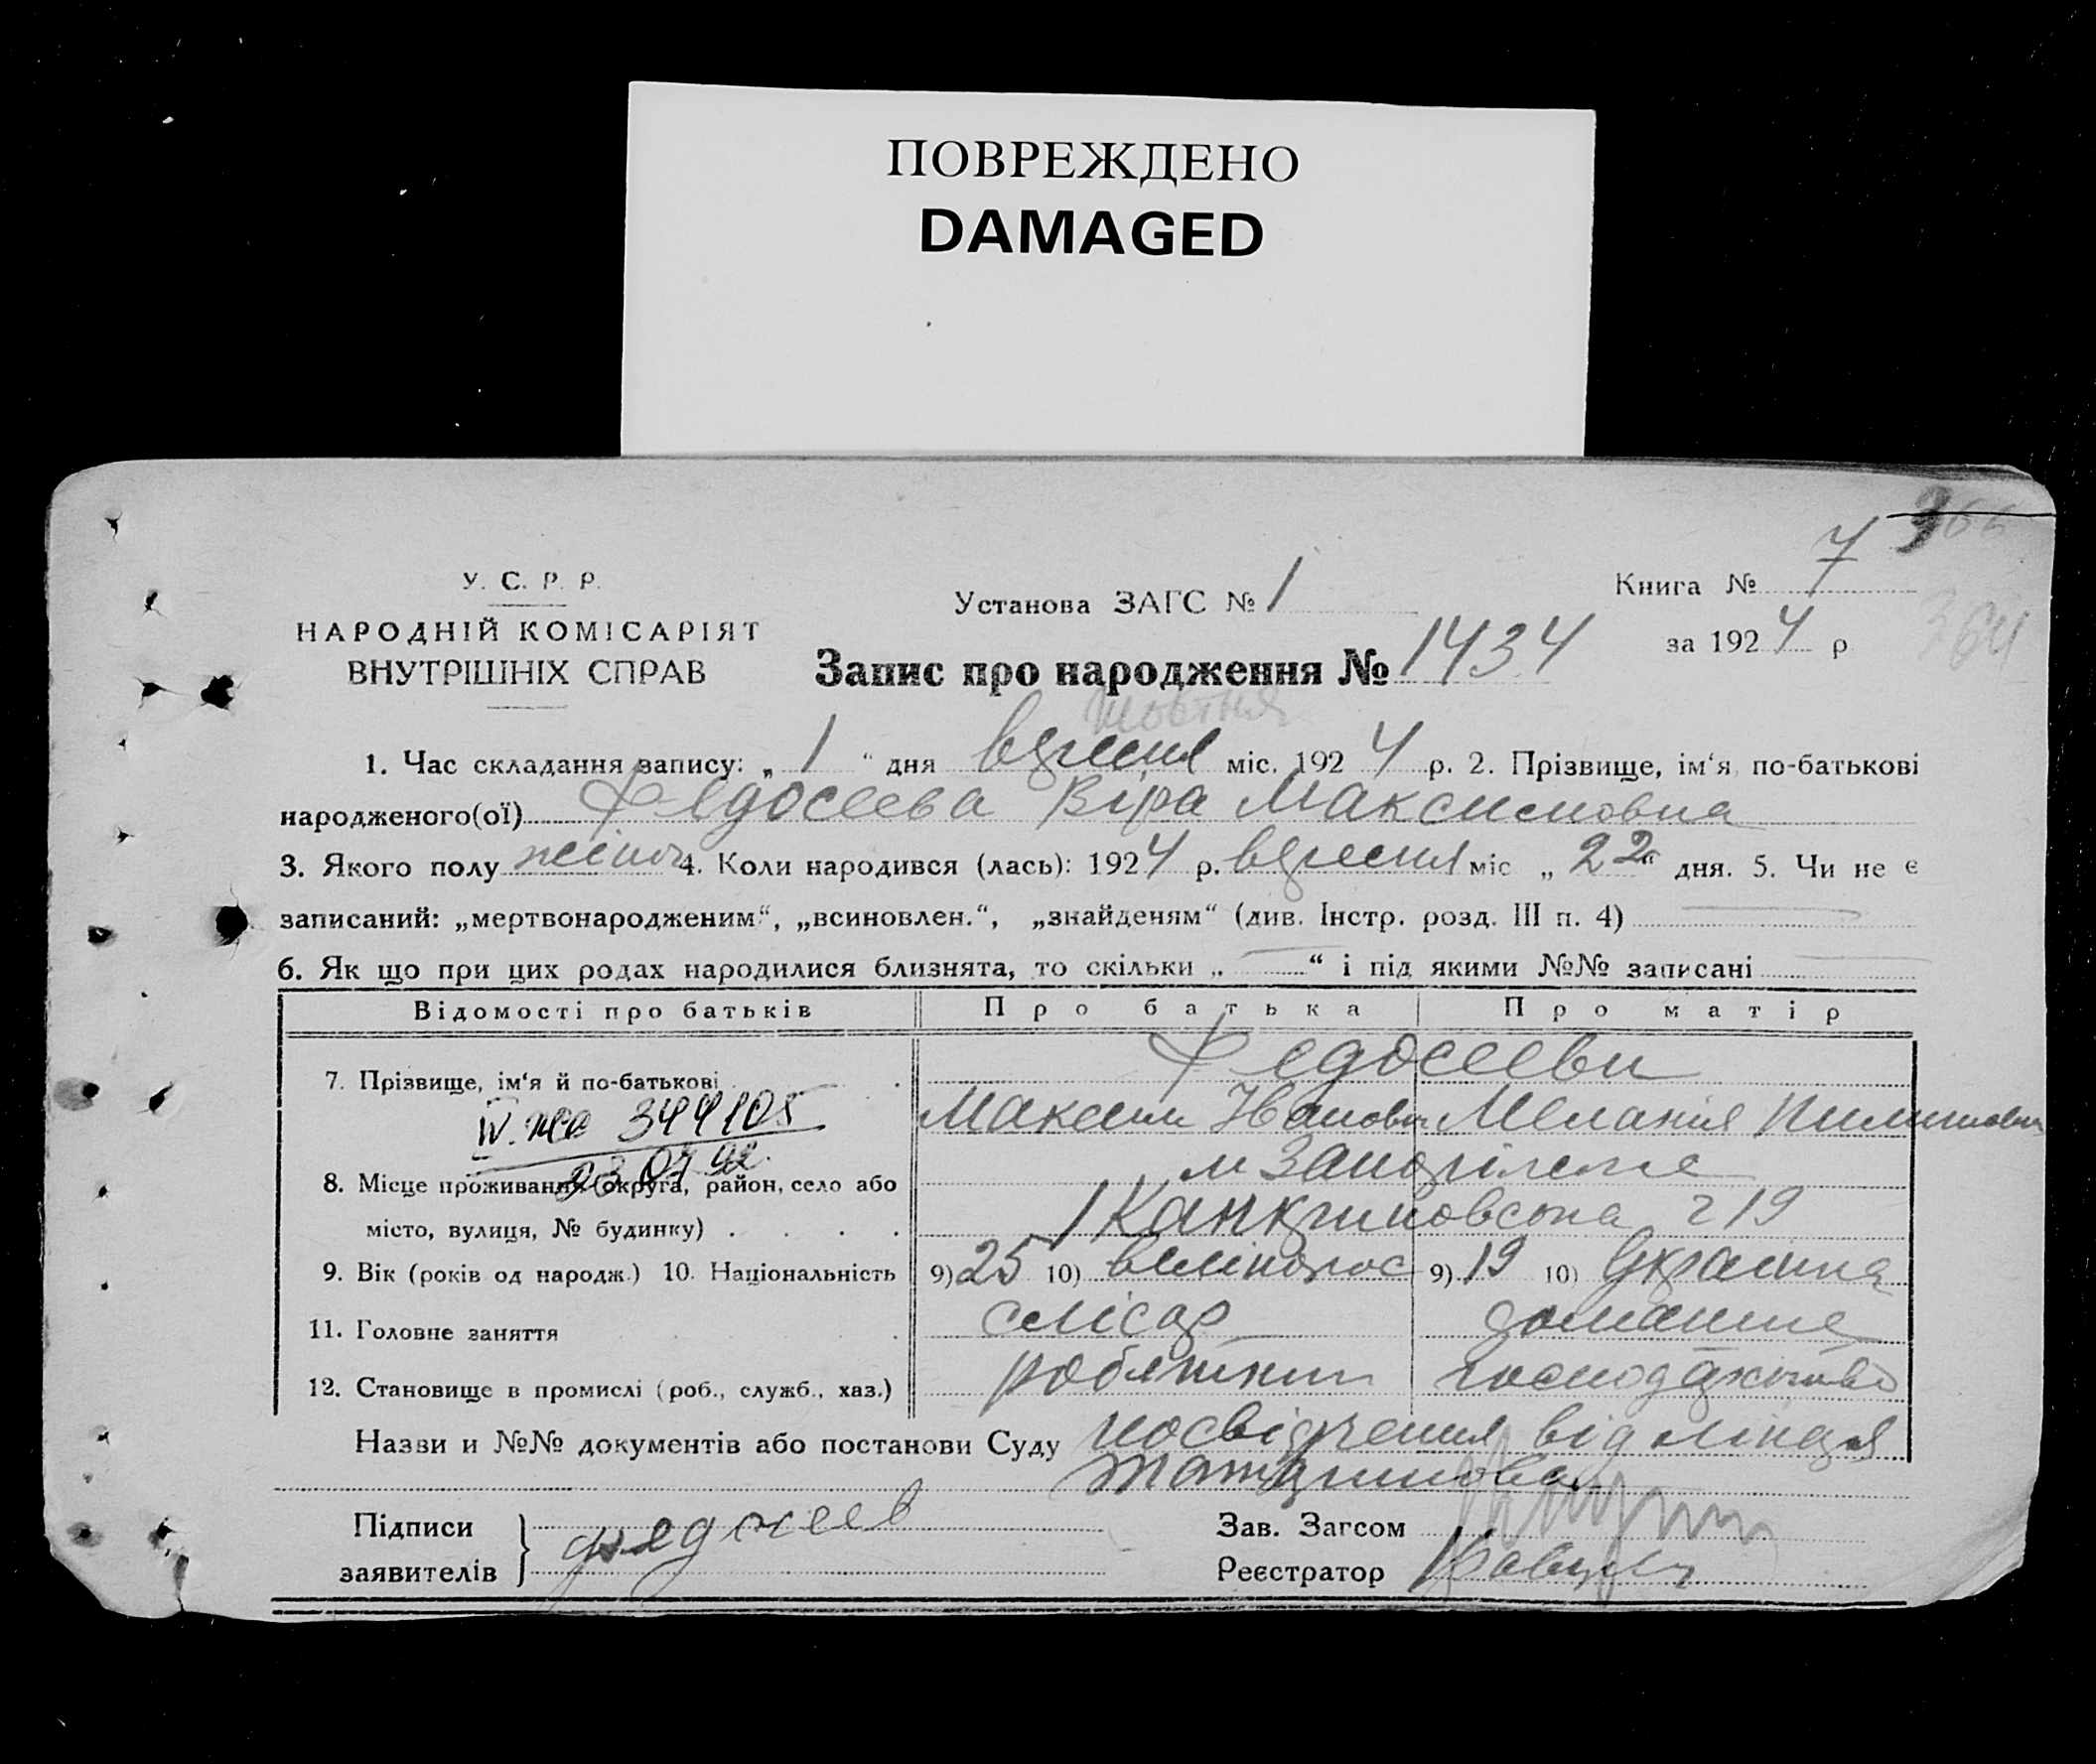 ПОВРЕЖДЕНО
DAMAGED
366
У. С. Р. Р.
НАРОДНІЙ КОМІСАРІЯТ
ВНУТРІШНІХ СПРАВ
Установа ЗАГС № 1
Книга № 7
за 1924 р
364
Запис про народження № 1434
жовтня
1. Час складання запису: „ 1 “ дня вересня міс. 1924 р. 2. Прізвище, ім‘я, по-батькові
народженого(ої) Федосеева Віра Максимовна
3. Якого полу жіноч 4. Коли народився (лась): 1924 р. вересня міс „ 22 “ дня. 5. Чи не є
записаний: „мертвонародженим“, „всиновлен.“, „знайденям“ (див. Інстр. розд. III п. 4)
6. Як що при цих родах народилися близнята, то скільки „ — “ і під якими №№ записані
Відомості про батьків Про батька Про матір
7. Прізвище, ім‘я й по-батькові Федосееви
Максим Іванови Меланія Пилиповна
344105
23 07
8. Місце проживання (округа, район, село або м Запоріжже
місто, вулиця, № будинку) 19
9. Вік (років од народж.) 10. Національність 9) 25 10) великорос 9) 19 10) Украинка
11. Головне заняття слісар домашнє
12. Становище в промислі (роб., служб., хаз.) робітник господарство
Назви и №№ документів або постанови Суду посвідчення від лікаря
Підписи
заявителів
Федосеев
Зав. Загсом
Реєстратор